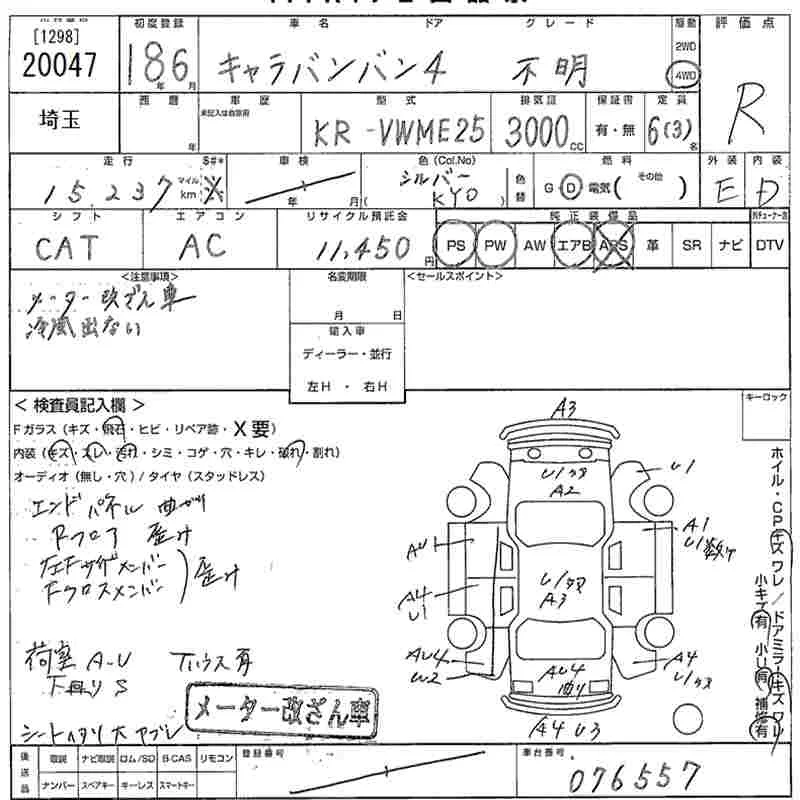 [1298]
20047
初度登録
18年6月
車名 ドア グレード
キャラバンバン4 不明
駆動
2WD
4WD
評価点
R
埼玉
西暦
年
車歴
未記入は自家用
型式
KR-VWME25
排気量
3000cc
保証書
有・無
定員
6(3)名
走行
15,237
マイル
km
S#*
車検
年 月
色(Col.No)
シルバー
KYO
色替
燃料
G D 電気 ( その他 )
外装
E
内装
D
シフト
CAT
エアコン
AC
リサイクル預託金
11,450円
純正装備品
PS PW AW エアB ABS 革 SR ナビ
DTV
<注意事項>
メーター改ざん車
冷風出ない
名変期限
月 日
輸入車
ディーラー・並行
左H ・ 右H
<セールスポイント>
キーロック
< 検査員記入欄 >
Fガラス(キズ・飛石・ヒビ・リペア跡・X要)
内装(キズ・スレ・汚れ・シミ・コゲ・穴・キレ・破れ・割れ)
オーディオ(無し・穴)/タイヤ(スタッドレス)
エンドパネル 曲がり
Rフロア 歪み
左Fサイドメンバー
Fクロスメンバー
歪み
荷室 A-U Tハウス有
下廻り S
シートヘタリ大 ヤブレ
メーター改ざん車
A3
U/タタ
A2
U1
AU1
A1
U1数ケ
A4
U1
U/タタ
A3
AU4
W2
AU4
曲り
A4
U/タタ
A4 U3
ホイル・CPキズ ワレ/ドアミラーキズ ワレ
小キズ有 小U有 補修有
後送品
取説 ナビ取説 ロム/SD B-CAS リモコン
ナンバー スペアキー キーレス スマートキー
登録番号
車台番号
076557